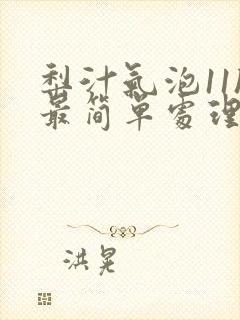 梨汁氣泡11
最简單處理
洪晃